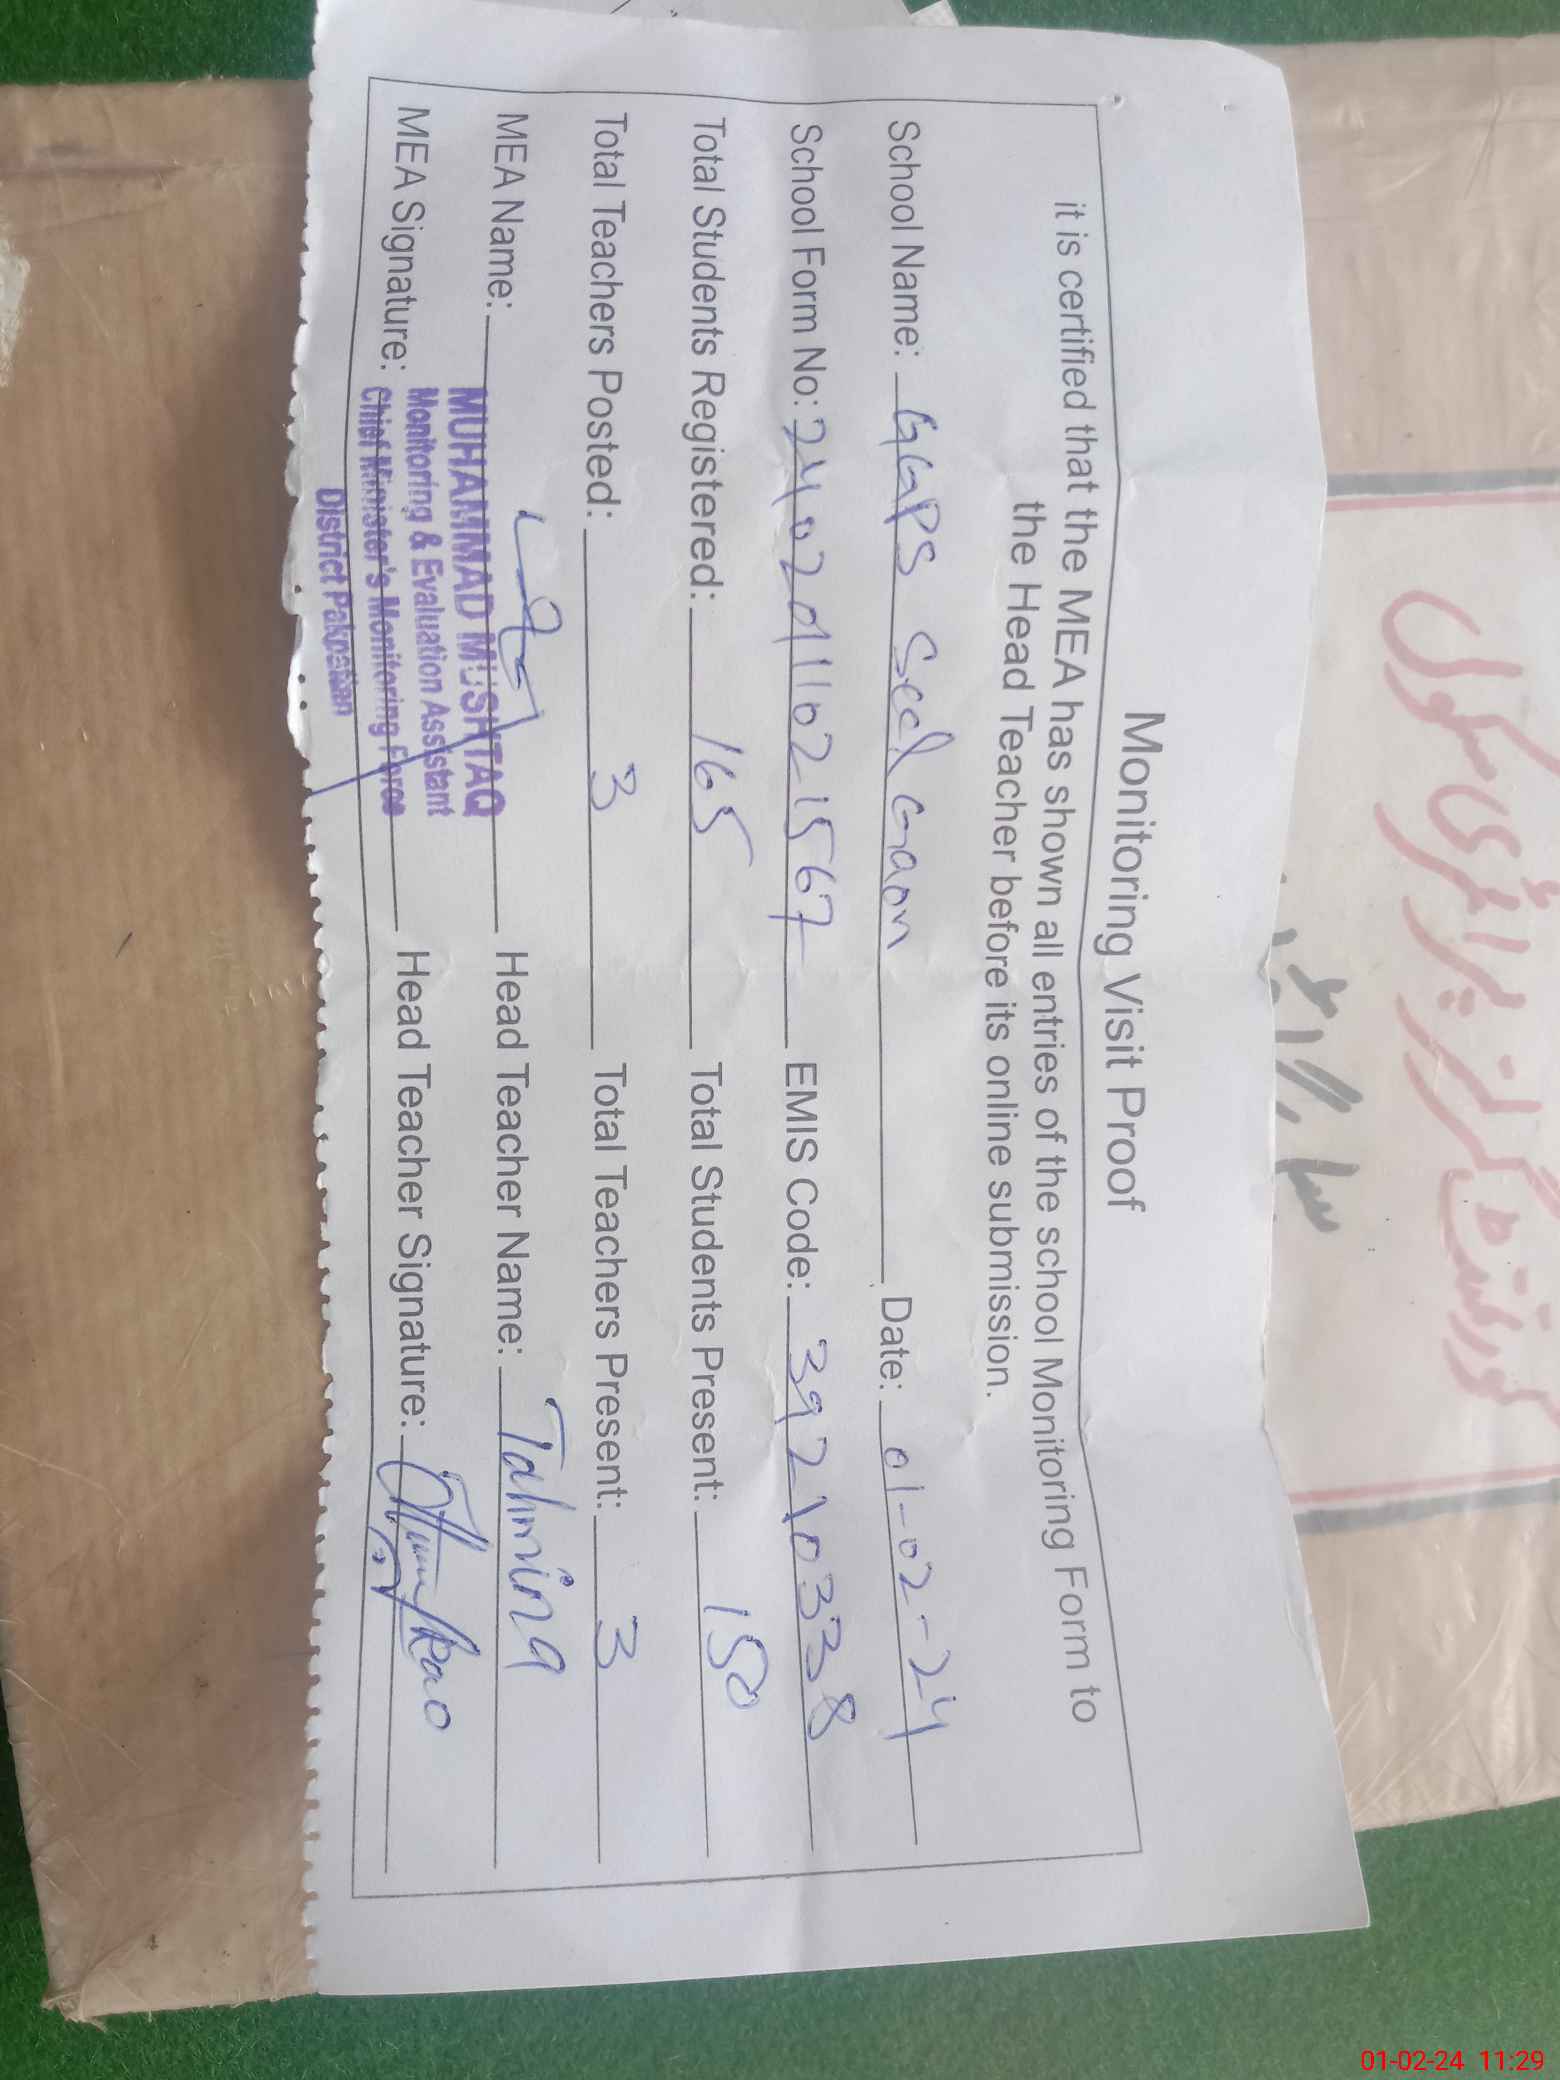 Monitoring Visit Proof
it is certified that the MEA has shown all entries of the school Monitoring Form to
the Head Teacher before its online submission.
School Name: GGPS Scel Gaon Date: 01-02-24
School Form No: 2402011021567 EMIS Code: 39210338
Total Students Registered: 165 Total Students Present: 150
Total Teachers Posted: 3 Total Teachers Present: 3
MEA Name: MUHAMMAD MUSHTAQ Head Teacher Name: Tahmina
Monitoring & Evaluation Assistant
MEA Signature: Chief Minister's Monitoring Force Head Teacher Signature:
District Pakpattan
گورنمنٹ گرلز پرائمری سکول
01-02-24 11:29